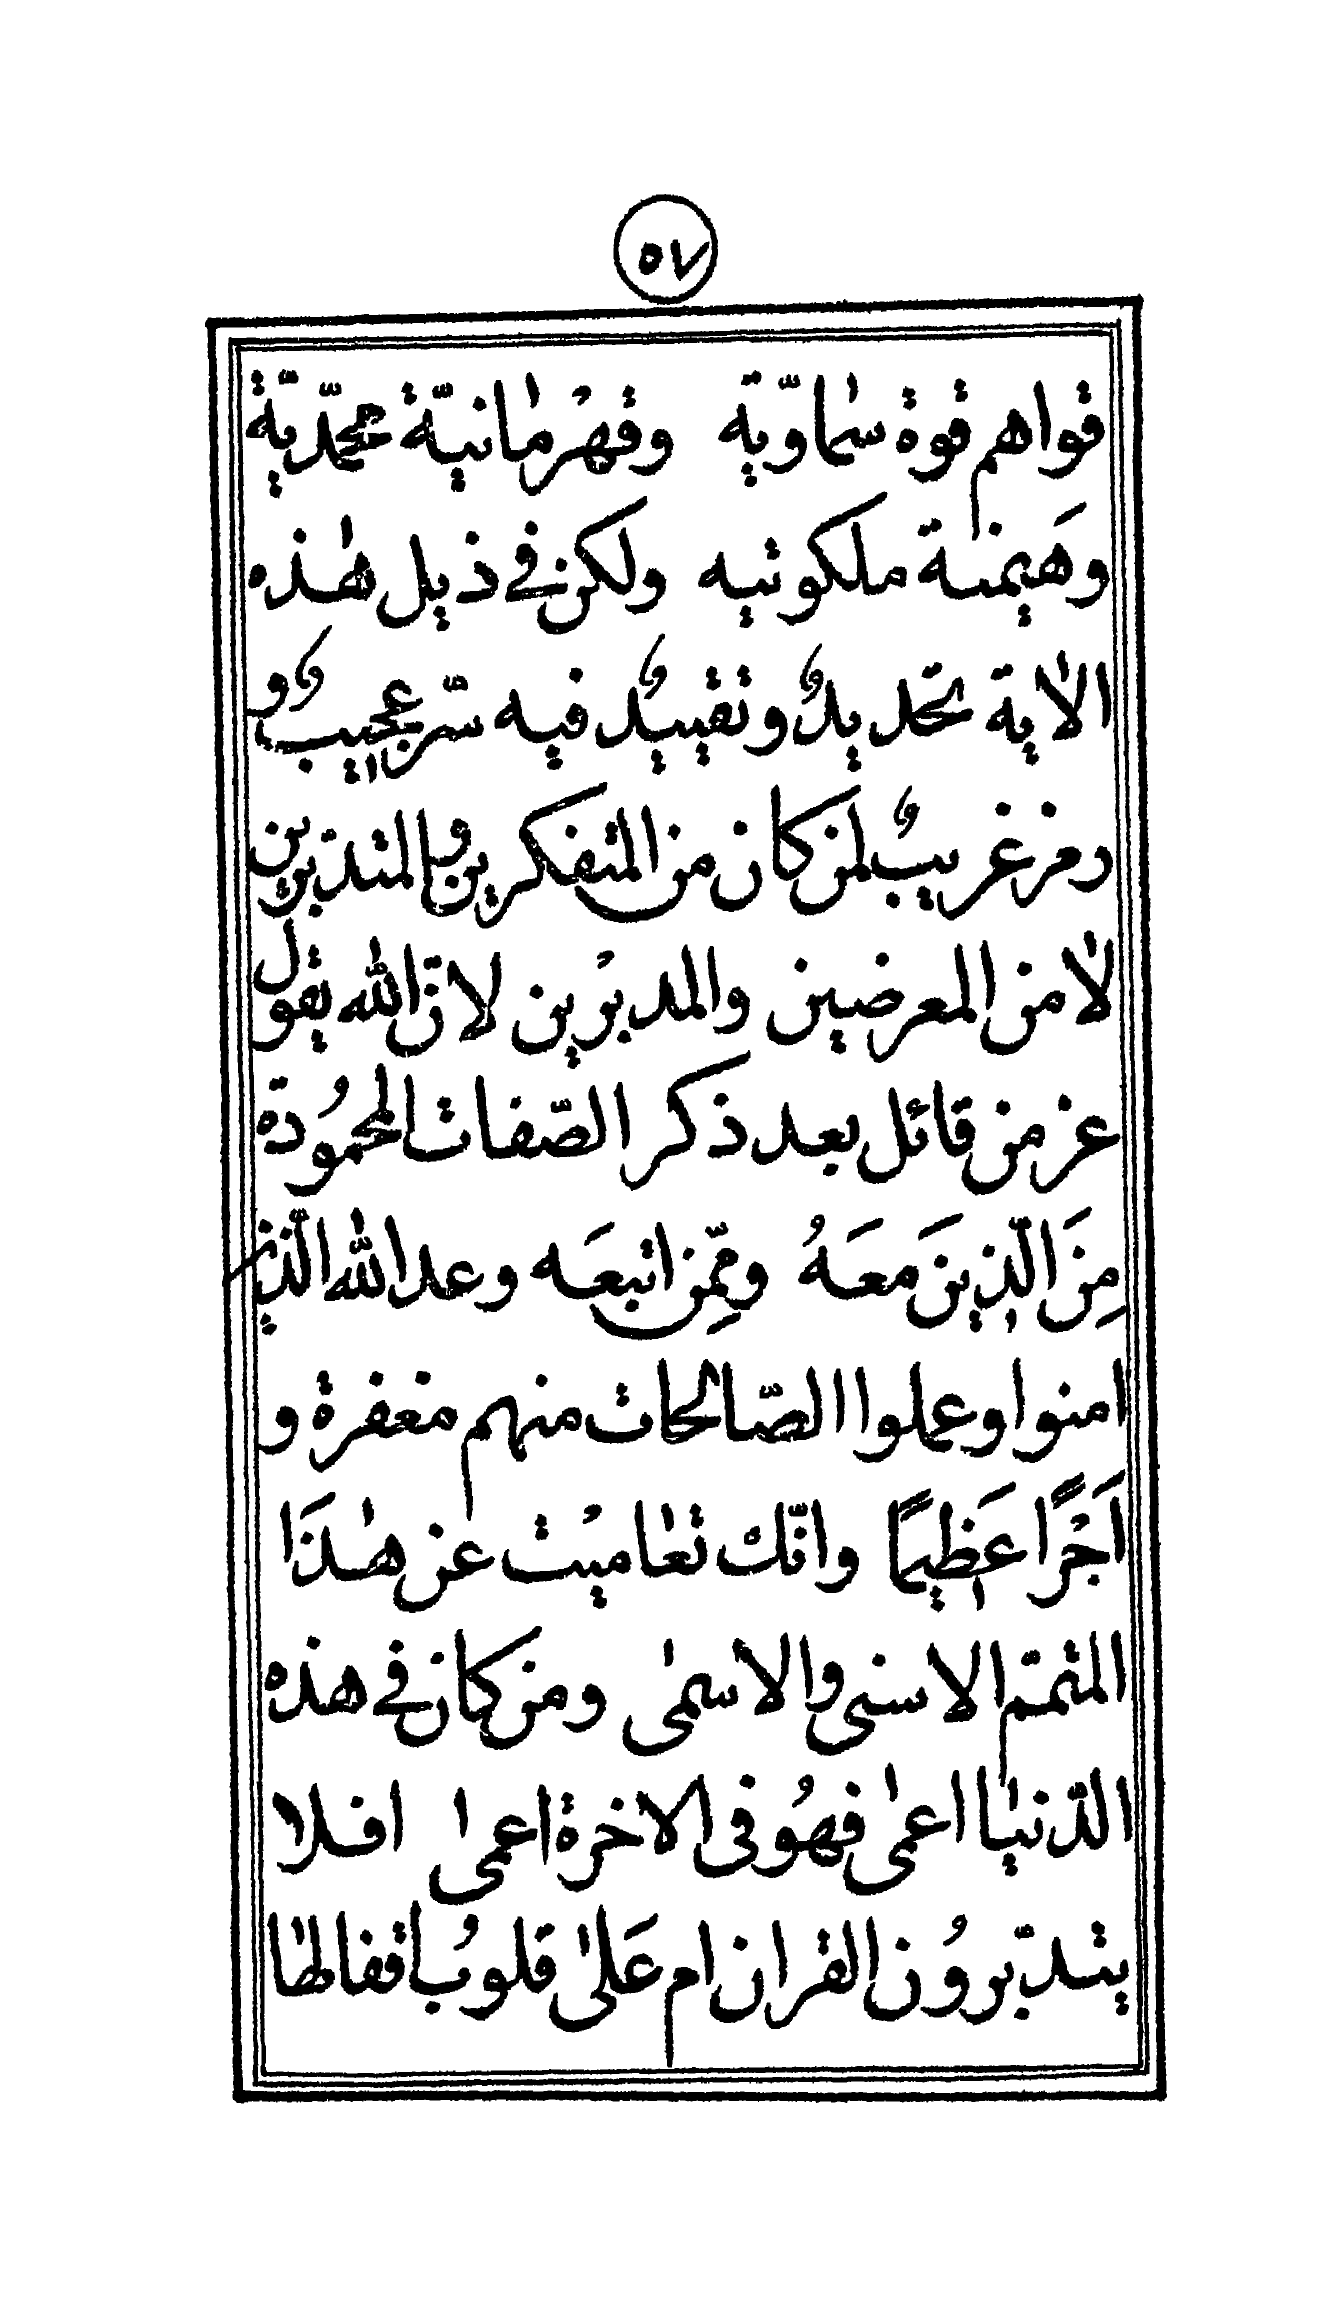 ٥٧
قواهم قوة سماويّة وقهُرمانيّة محمّديّة
وهَيمنة ملكوتيه ولكن في ذيل هٰذه
الاٰية تحديدٌ وتقييدٌ فيه سرّ عجيبٌ و
رمز غريبٌ لمن كان من المتفكرين والمتدبرين
لا من المعرضين والمدبرُين لانّ الله يقول
عز من قائل بعد ذكر الصّفات المحمُودة
مِنَ الّذِينَ معَهُ وممِّن اتبعَه وعد الله الّذِين
اٰمنوا وعملوا الصّالحات منهم مغفرة و
اَجْرًا عَظِيمًا وانّك تعاميْت عن هٰذَا
المتمّم الاسنى والاسمٰى ومن كان في هذه
الدّنيٰا اعمٰى فهُو في الاخرة اعمٰى افلا
يتدبّرُون القران ام عَلىٰ قلوبُ اقفالهٰا